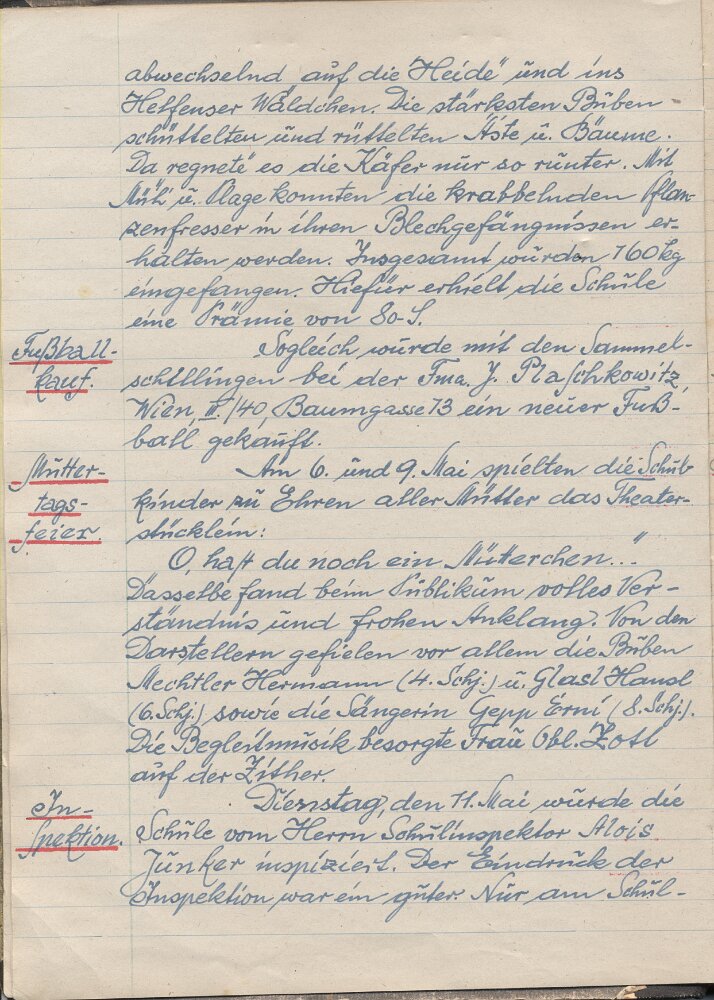 abwechselnd „auf die Heide" und ins
Helfenser Wäldchen. Die stärksten Buben
schüttelten und rüttelten Äste u. Bäume.
Da „regnete" es die Käfer nur so runter. Mit
Müh' u. Plage konnten die krabbelnden Pflan-
zenfresser in ihren Blechgefängnissen er-
halten werden. Insgesamt wurden 160 kg
eingefangen. Hiefür erhielt die Schule
eine Prämie von 80.-S.
Fußball-
kauf.
Sogleich wurde mit den Sammel-
schillingen bei der Fma. J. Plaschkowitz,
Wien, III./40, Baumgasse 73 ein neuer Fuß-
ball gekauft.
Mutter-
tags-
feier.
Am 6. und 9. Mai spielten die Schul-
kinder zu Ehren aller Mütter das Theater-
stücklein:
O, hast du noch ein Mütterchen..."
Dasselbe fand beim Publikum volles Ver-
ständnis und frohen Anklang. Von den
Darstellern gefielen vor allem die Buben
Mechtler Hermann (4. Schj.) u. Glasl Hansl
(6. Schj.) sowie die Sängerin Gepp Erni (8. Schj.).
Die Begleitmusik besorgte Frau Obl. Zotl
auf der Zither.
In-
spektion.
Dienstag, den 11. Mai wurde die
Schule vom Herrn Schulinspektor Alois
Junker inspiziert. Der Eindruck der
Inspektion war ein guter. Nur am Schul-